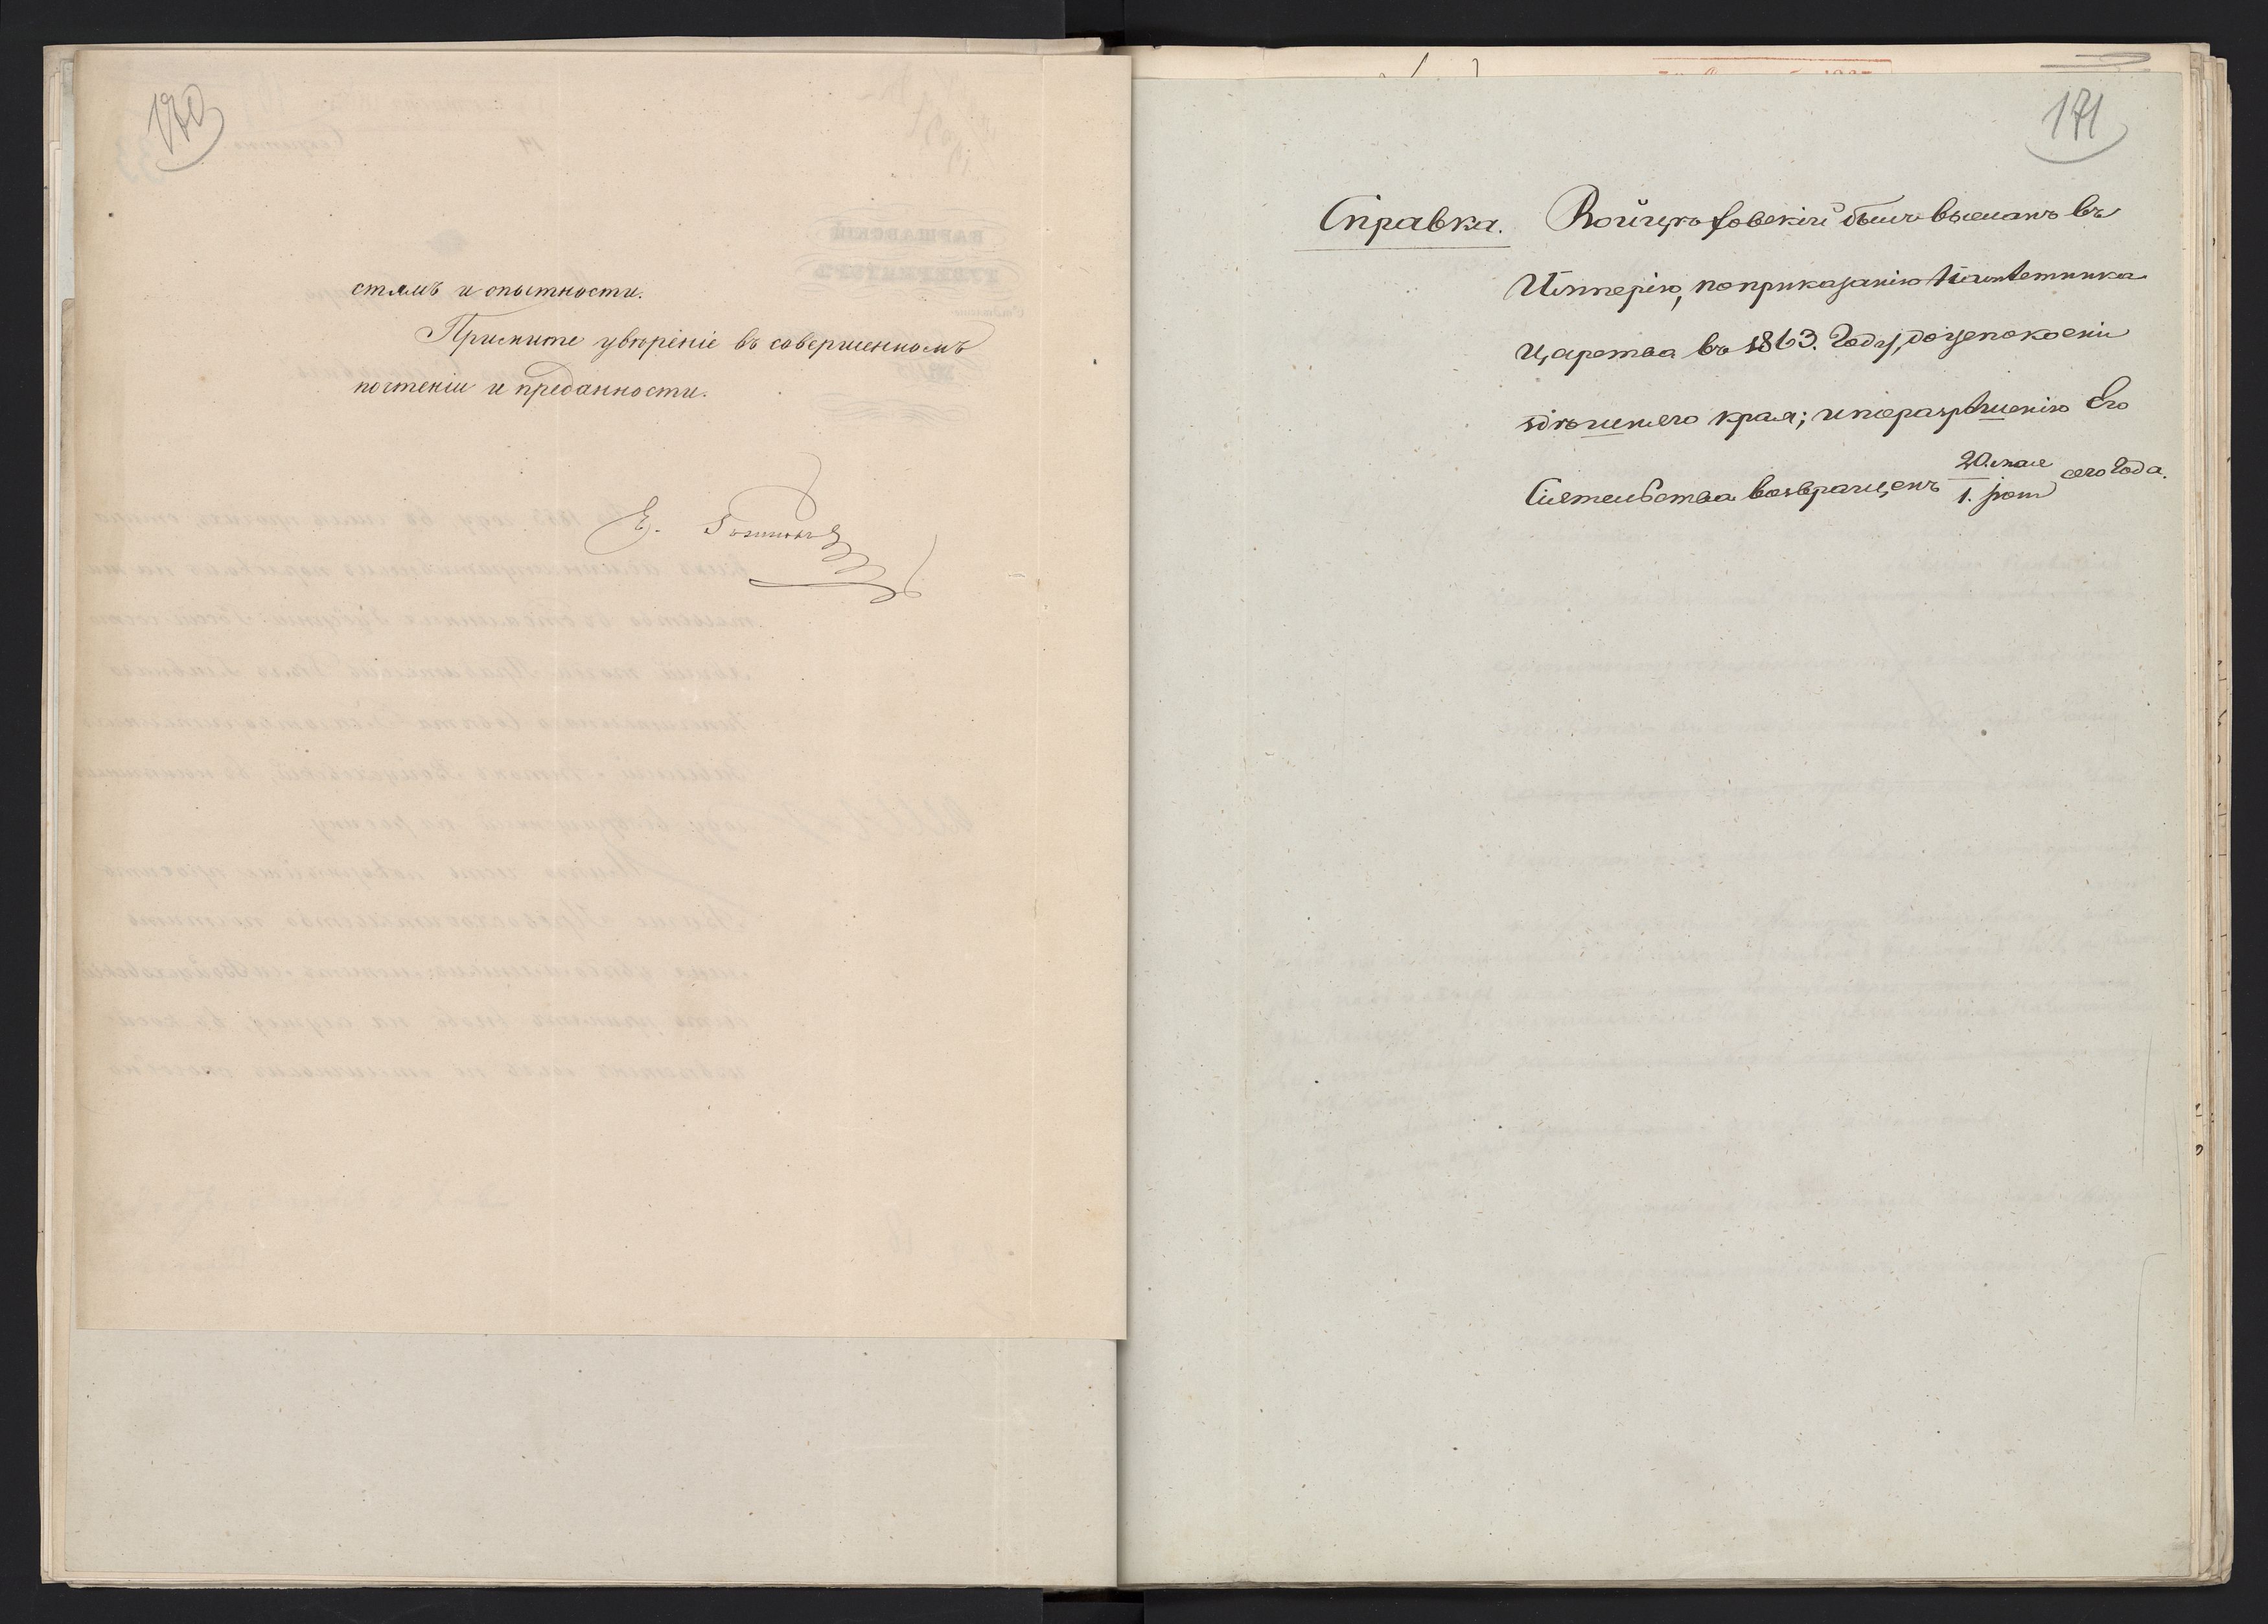 170
стямъ и опытности.
Примите увѣреніе въ совершенномъ
почтеніи и преданности.
171
Справка. Войцѣховскій былъ высланъ въ
Имперію, по приказанію Намѣстника
Царства въ 1863. году, до успокоенія
здѣшняго края; и по разрѣшенію Его
Сіятельства возвращенъ 20. мая / 1. іюня сего года.